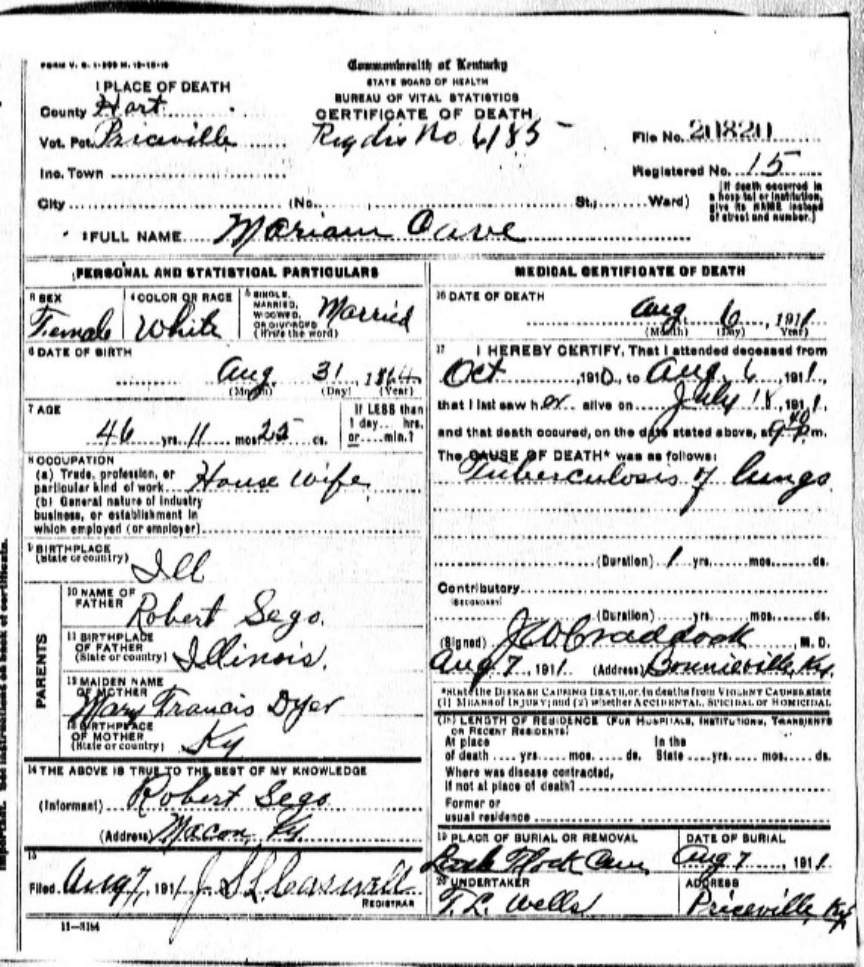 FORM V. S. 1-300 M. 12-15-10
Commonwealth of Kentucky
STATE BOARD OF HEALTH
BUREAU OF VITAL STATISTICS
CERTIFICATE OF DEATH
1 PLACE OF DEATH
County Hart
Vot. Pct. Priceville
Reg dis No 6185
File No. 20820
Inc. Town
Registered No. 15
City (No. St.; Ward)
[If death occurred in a hospital or institution, give its NAME instead of street and number.]
2 FULL NAME Mariam Cave
PERSONAL AND STATISTICAL PARTICULARS
3 SEX Female
4 COLOR OR RACE White
5 SINGLE, MARRIED, WIDOWED, OR DIVORCED (Write the word) Married
6 DATE OF BIRTH
Aug. 31, 1864
(Month) (Day) (Year)
7 AGE
46 yrs. 11 mos. 25 ds.
If LESS than 1 day... hrs. or.... min.?
8 OCCUPATION
(a) Trade, profession, or particular kind of work House wife
(b) General nature of industry business, or establishment in which employed (or employer)
9 BIRTHPLACE
(State or country) Ill
PARENTS
10 NAME OF FATHER Robert Sego.
11 BIRTHPLACE OF FATHER (State or country) Illinois.
12 MAIDEN NAME OF MOTHER Mary Francis Dyer
13 BIRTHPLACE OF MOTHER (State or country) Ky
14 THE ABOVE IS TRUE TO THE BEST OF MY KNOWLEDGE
(Informant) Robert Sego
(Address) Macon, Ky.
15
Filed Aug 7, 1911 J S L Caswell
REGISTRAR
11-3184
MEDICAL CERTIFICATE OF DEATH
16 DATE OF DEATH
Aug. 6, 1911
(Month) (Day) (Year)
17 I HEREBY CERTIFY, That I attended deceased from
Oct, 1910, to Aug. 6, 1911,
that I last saw her alive on July 18, 1911,
and that death occured, on the date stated above, at 9 40 P m.
The CAUSE OF DEATH* was as follows:
Tuberculosis of lungs
(Duration) 1 yrs. mos. ds.
Contributory
(SECONDARY)
(Duration) yrs. mos. ds.
(Signed) J W Craddock, M. D.
Aug 7, 1911 (Address) Bonnieville, Ky.
*State the DISEASE CAUSING DEATH, or, in deaths from VIOLENT CAUSES, state
(1) MEANS OF INJURY; and (2) whether ACCIDENTAL, SUICIDAL OR HOMICIDAL
18 LENGTH OF RESIDENCE (FOR HOSPITALS, INSTITUTIONS, TRANSIENTS OR RECENT RESIDENTS)
At place of death .... yrs. .... mos. .... ds. In the State .... yrs. .... mos. .... ds.
Where was disease contracted,
if not at place of death?
Former or
usual residence
19 PLACE OF BURIAL OR REMOVAL
DATE OF BURIAL
Aug 7, 1911
20 UNDERTAKER
T. L. Wells
ADDRESS
Priceville, Ky.